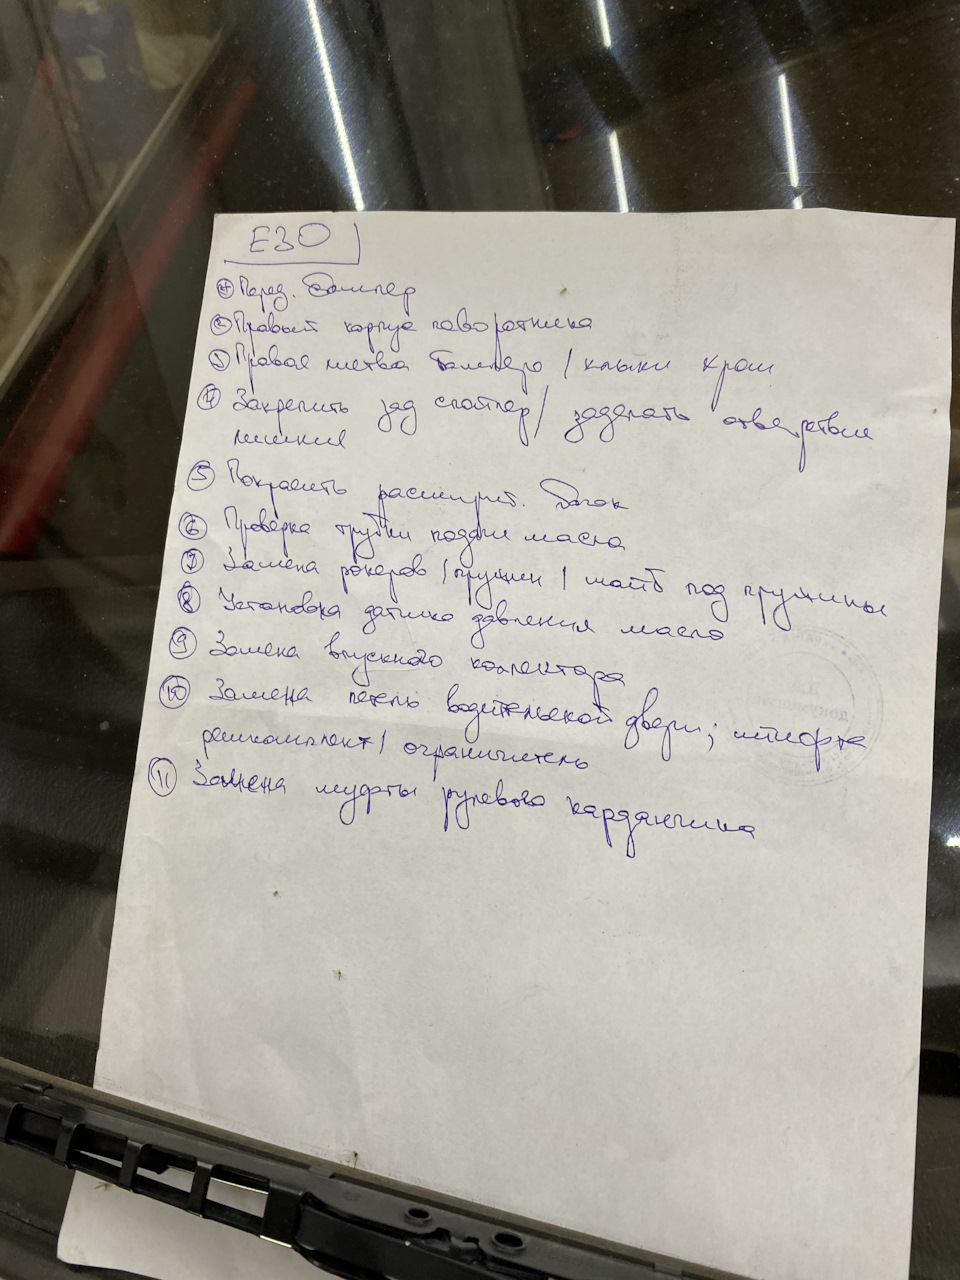 E30
1 Перед. бампер
2 Правый корпус поворотника
3 Правая метва бампера / клыки хром
4 Закрепить зад спойлер / заделать отверствие
лишние
5 Покрасить расширит. бачок
6 Проверка трубки подачи масла
7 Замена рокеров / пружин / шайб под пружины
8 Установка датчика давления масла
9 Замена впускного коллектора
10 Замена петель водительской двери;
ремкомплект / ограничитель
11 Замена муфты рулевого карданчика